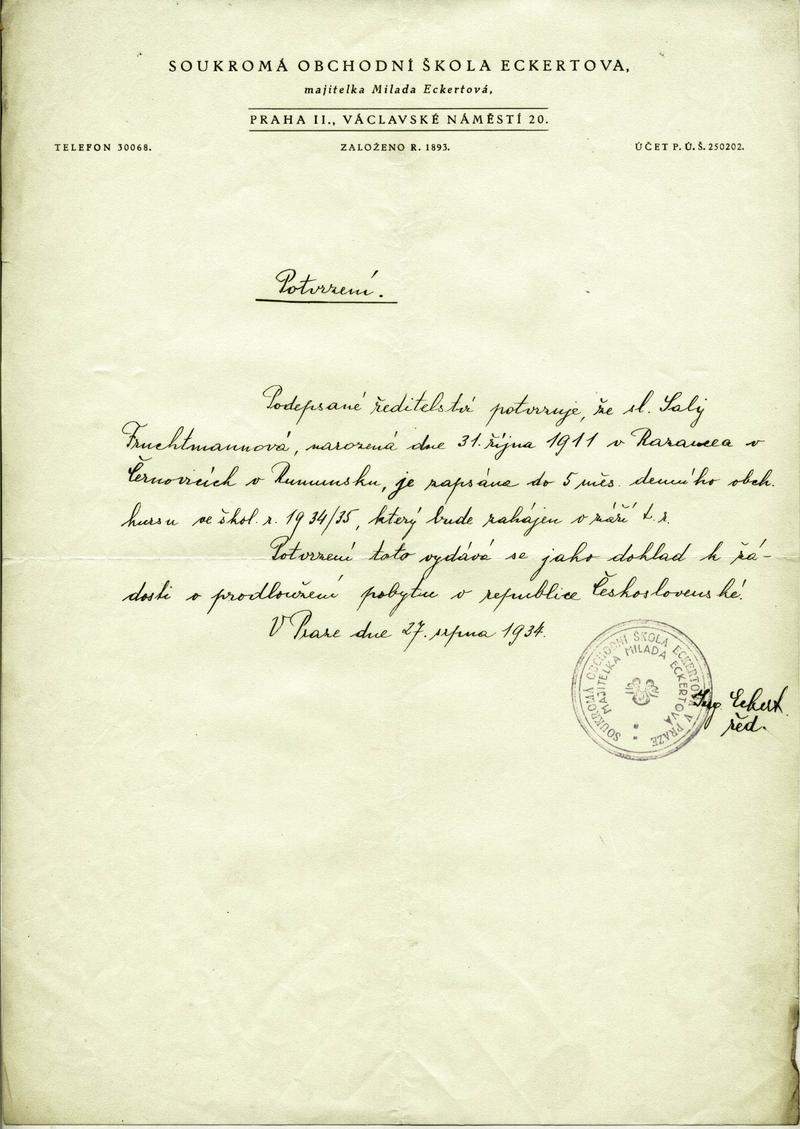 SOUKROMÁ OBCHODNÍ ŠKOLA ECKERTOVA,
majitelka Milada Eckertová,
PRAHA II., VÁCLAVSKÉ NÁMĚSTÍ 20.
TELEFON 30068. ZALOŽENO R. 1893. ÚČET P. Ú. Š. 250202.
Potvrzení.
Podepsané ředitelství potvrzuje, že sl. Saly
Fruchtmannová, narozená dne 31. října 1911 v Rarancea v
Černovicích v Rumunsku, je zapsána do 5 měs. denního obch.
kursu ve škol. r. 1934/35, který bude zahájen v září t. r.
Potvrzení toto vydává se jako doklad k žá-
dosti o prodloužení pobytu v republice Československé.
V Praze dne 27. srpna 1934.
SOUKROMÁ OBCHODNÍ ŠKOLA ECKERTOVA V PRAZE
MAJITELKA MILADA ECKERTOVÁ
Ing. Eckert
řed.